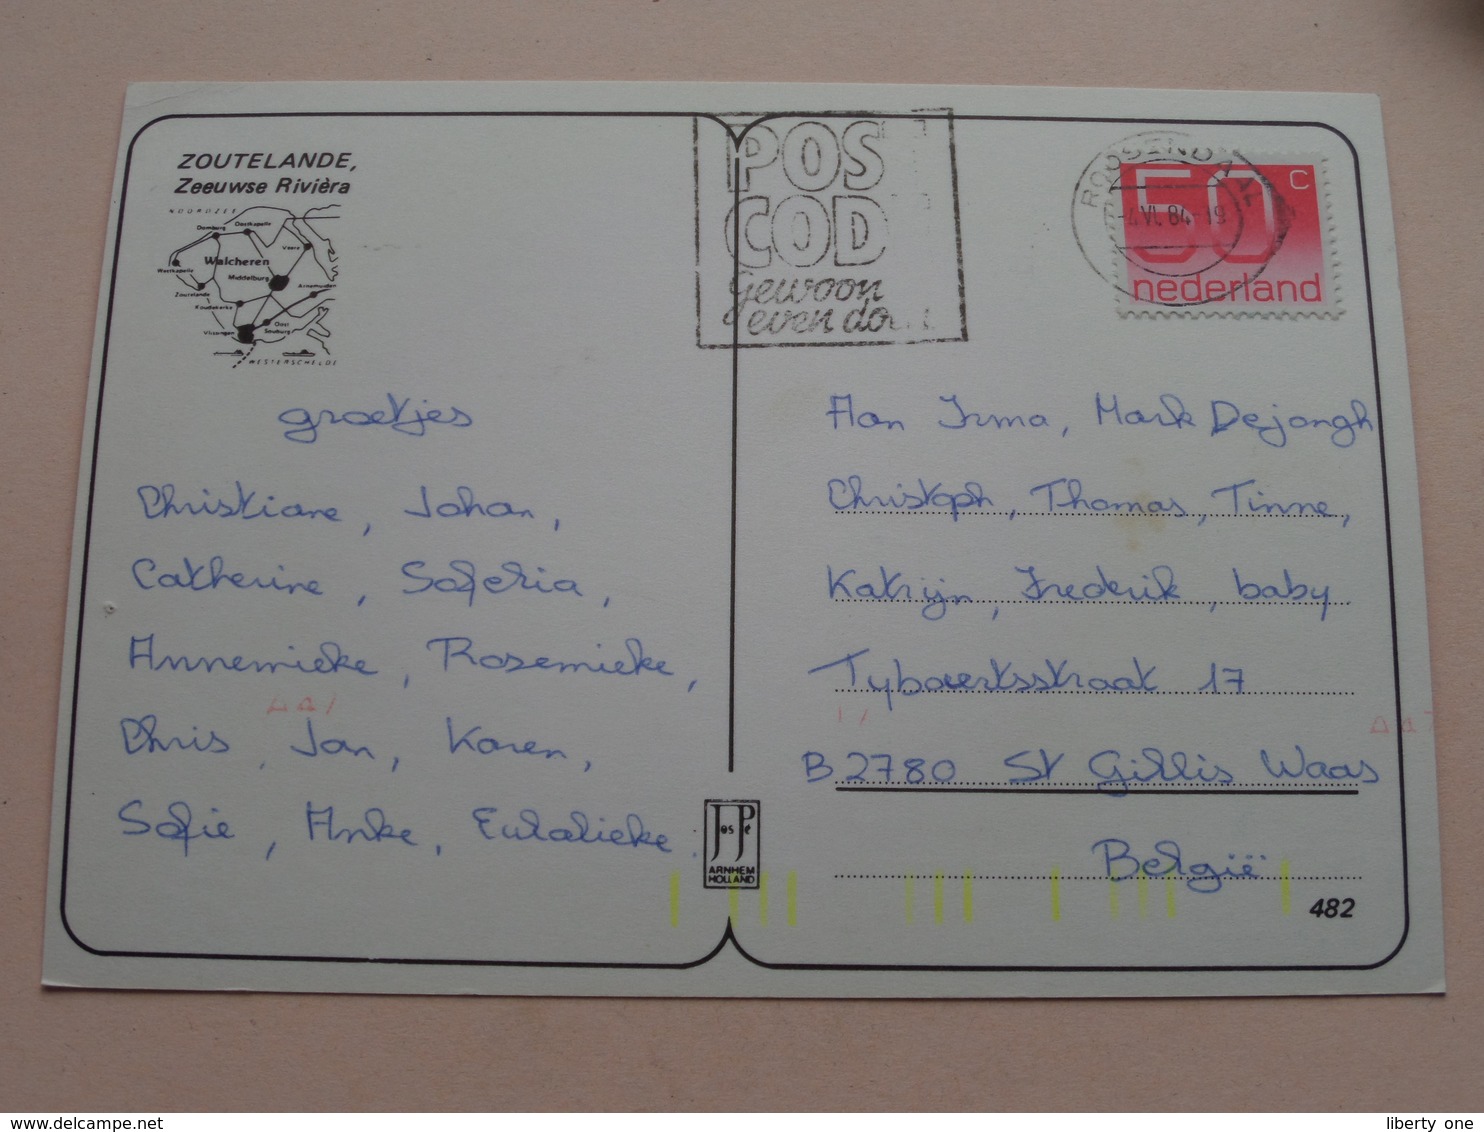 ZOUTELANDE,
Zeeuwse Rivièra
NOORDZEE
Domburg
Oostkapelle
Veere
Walcheren
Westkapelle
Middelburg
Arnemuiden
Zoutelande
Koudekerke
Vlissingen
Oost
Souburg
WESTERSCHELDE
groetjes
Christiane, Johan,
Catherine, Saferia,
Annemieke, Rosemieke,
Chris, Jan, Karen,
Sofie, Anke, Eulalieke.
Jos Pé
ARNHEM
HOLLAND
POS
COD
gewoon
even do
ROOSENDAAL
-4.VI.84-19
50 C
nederland
Aan Irma, Mark Dejongh
Christoph, Thomas, Tinne,
Katrijn, Frederik, baby
Tybaertsstraat 17
B 2780 St Gillis Waas
België
482
liberty one